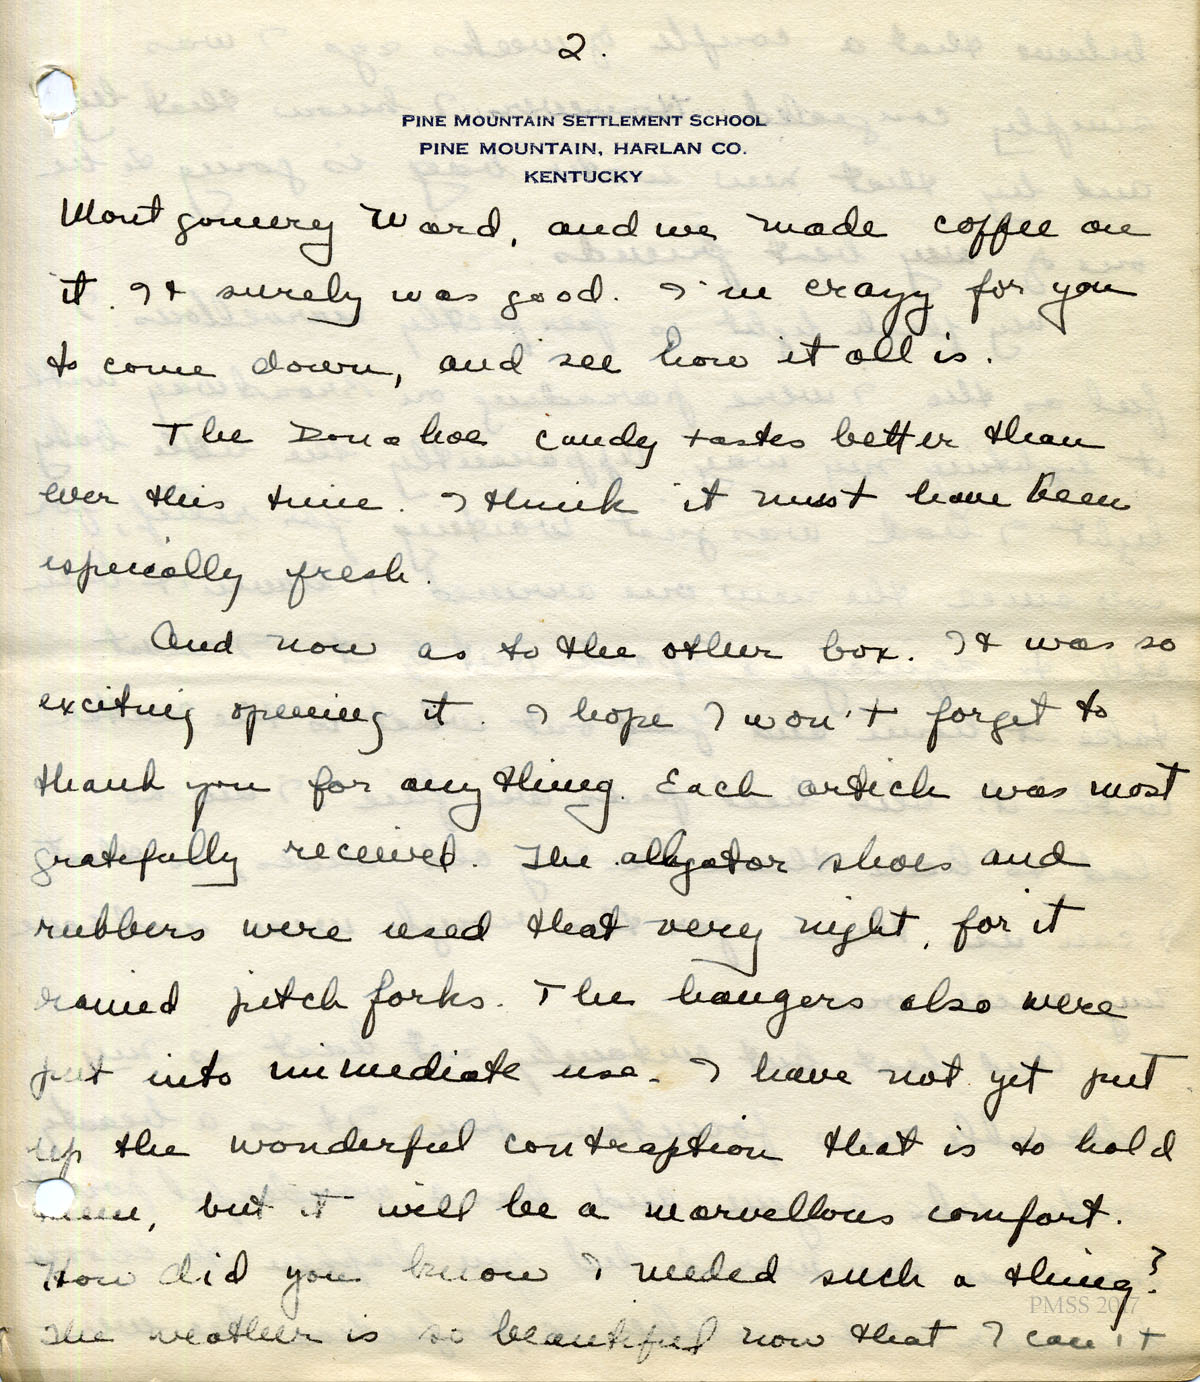 2.
PINE MOUNTAIN SETTLEMENT SCHOOL
PINE MOUNTAIN, HARLAN CO.
KENTUCKY
Montgomery Ward, and we made coffee on
it. It surely was good. I'm crazy for you
to come down, and see how it all is.
The Donahoe candy tastes better than
ever this time. I think it must have been
especially fresh.
And now as to the other box. It was so
exciting opening it. I hope I won't forget to
thank you for anything. Each article was most
gratefully received. The alligator shoes and
rubbers were used that very night, for it
rained pitch forks. The hangers also were
put into immediate use. I have not yet put
up the wonderful contraption that is to hold
them, but it will be a marvellous comfort.
How did you know I needed such a thing?
The weather is so beautiful now that I can't
PMSS 2017